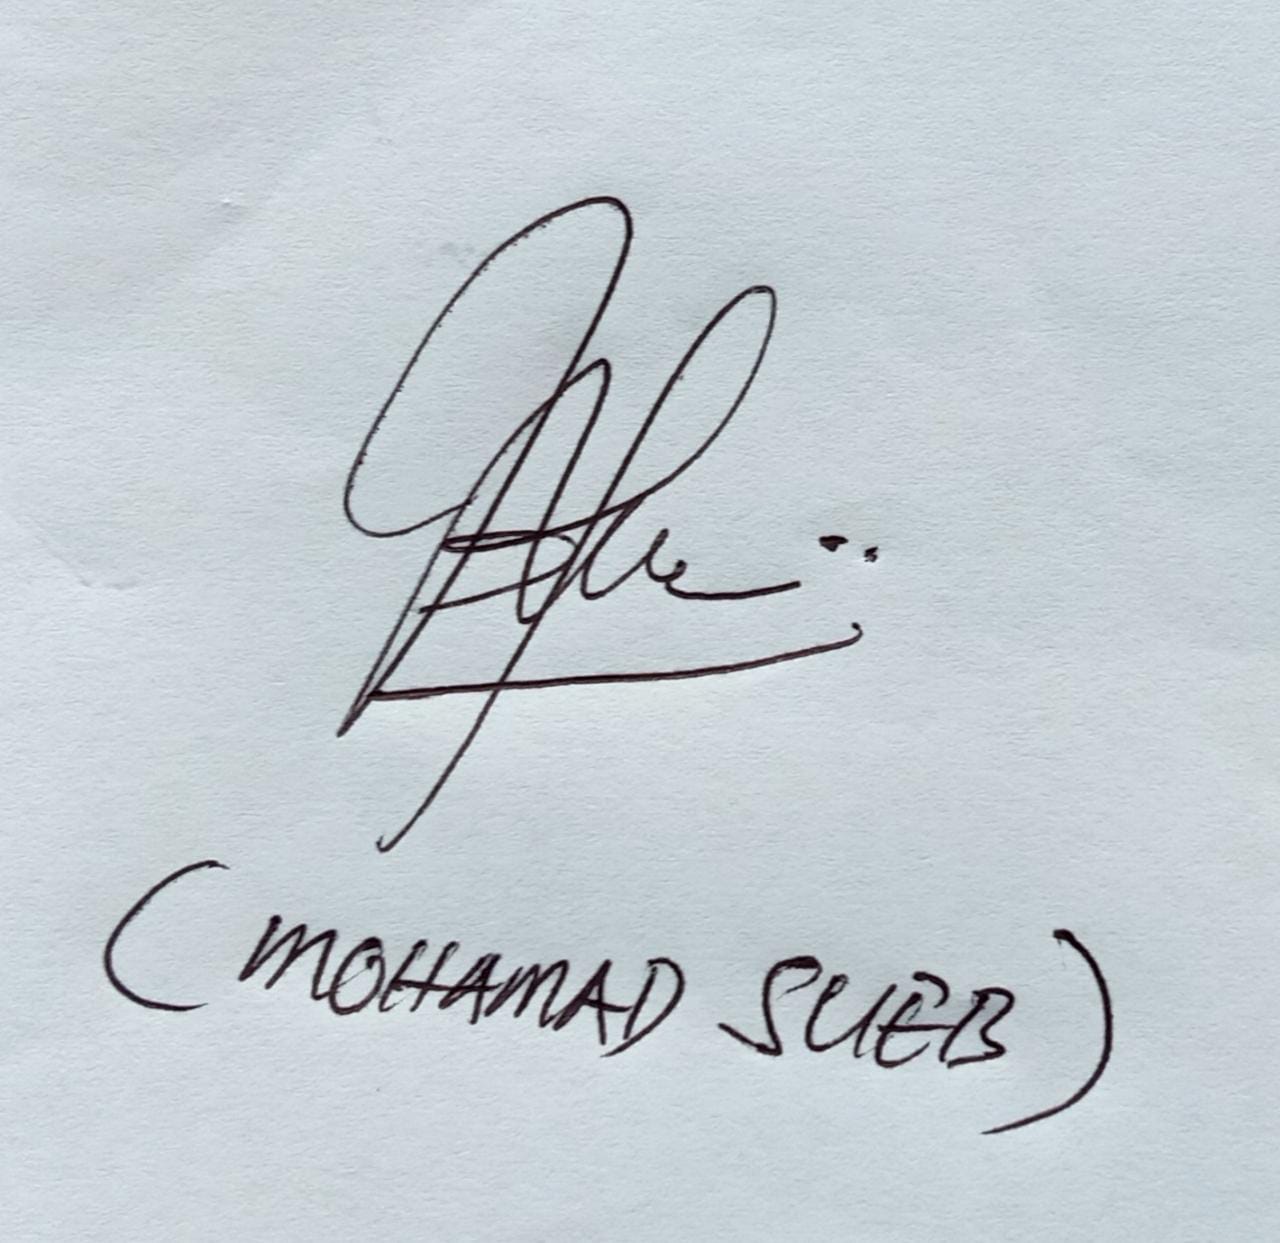 (MOHAMAD SUEB)